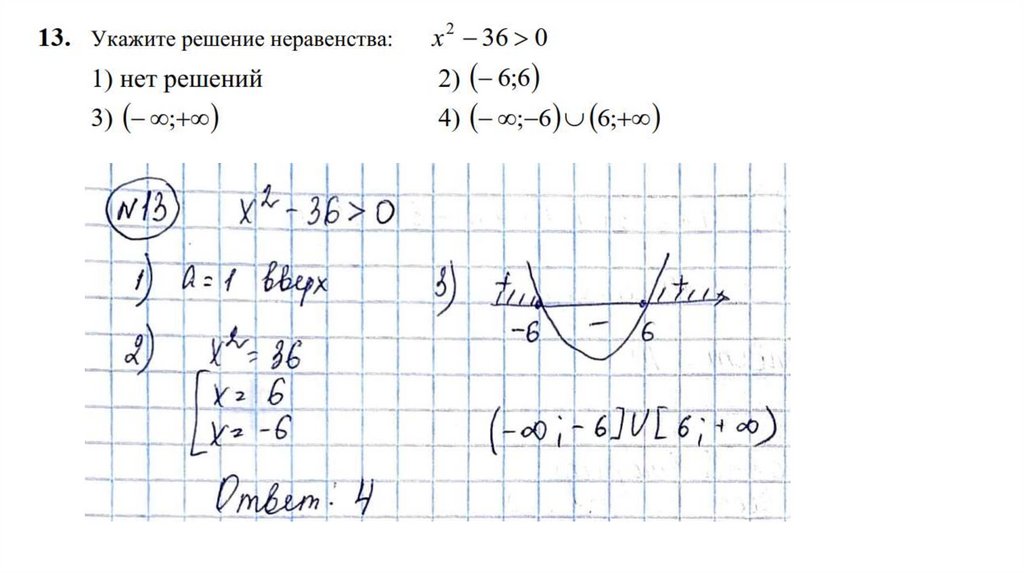 13. Укажите решение неравенства: x² – 36 > 0
1) нет решений 2) (– 6;6)
3) (– ∞;+∞) 4) (– ∞;–6)∪(6;+∞)
N13 x² - 36 > 0
1) a = 1 вверх
2) x² = 36
x = 6
x = -6
3) + - +
-6 6
(-∞; - 6]U[6; + ∞)
Ответ: 4